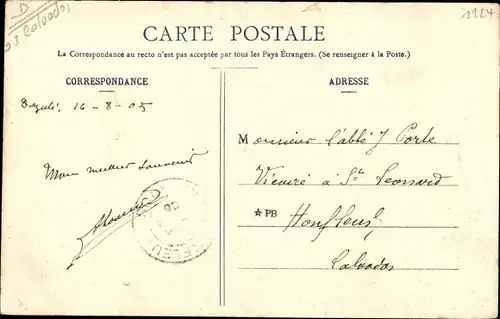 D
Calvados
CARTE POSTALE
La Correspondance au recto n'est pas acceptée par tous les Pays Étrangers. (Se renseigner à la Poste.)
CORRESPONDANCE
ADRESSE
16 - 8 - 05
Mon meilleur souvenir
Monsieur l'abbé J Porte
Vicaire à St Leonard
★PB
Honfleur
Calvados